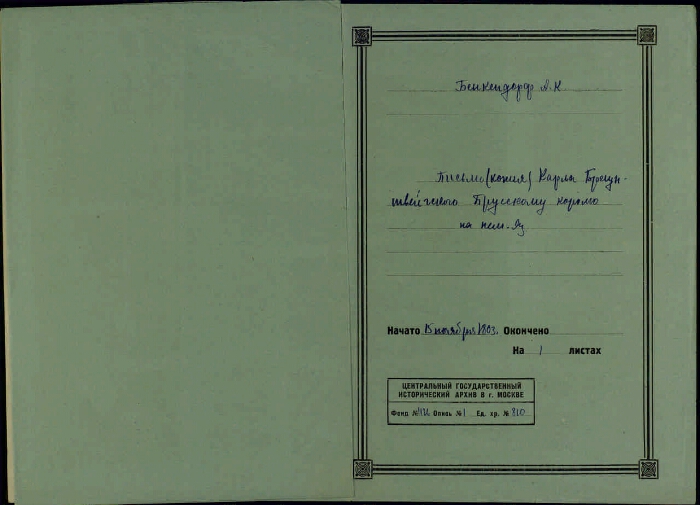 Бенкендорф А.К
Письмо (копия) Карла Браун-
швейгского Прусскому королю
на нем. яз
Начато 15 ноября 1803. Окончено
На 1 листах
ЦЕНТРАЛЬНЫЙ ГОСУДАРСТВЕННЫЙ
ИСТОРИЧЕСКИЙ АРХИВ В г. МОСКВЕ
Фонд № Опись №1 Ед. хр. № 810